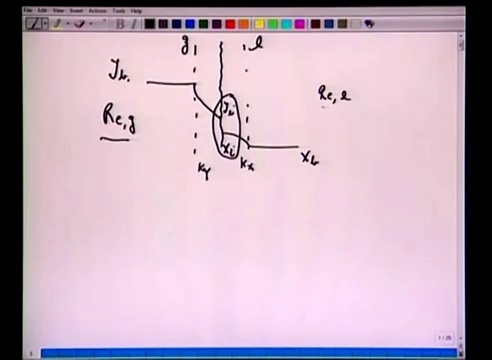 File Edit View Insert Actions Tools Help
g l
y_b.
Re,g
Re, l
y_i
x_i
k_y k_x x_b
1 / 25